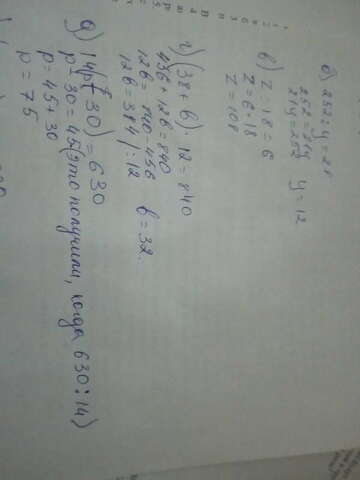 б) 252 : у = 21
252 = 21у
21у = 252 у = 12
в) z : 18 = 6
z = 6 · 18
z = 108
г) (38 + b) · 12 = 840
456 + 12b = 840
12b = 840 - 456
12b = 384 | : 12 b = 32.
д) 14(p - 30) = 630
p - 30 = 45 (это получили, когда 630 : 14)
p = 45 + 30
p = 75